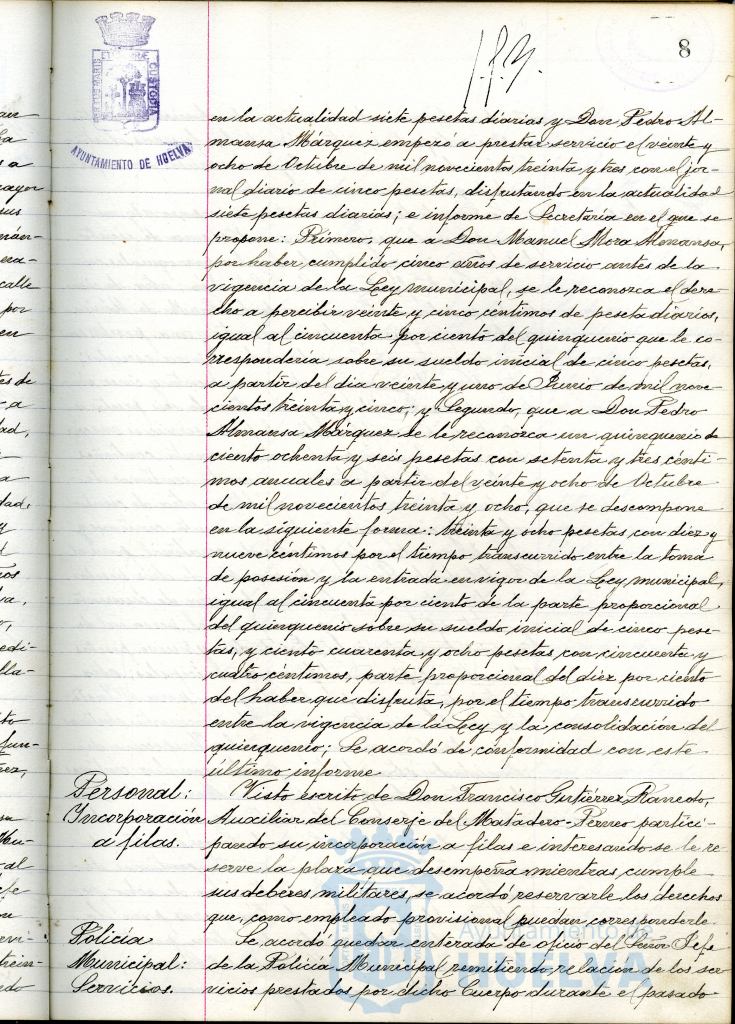 8
PORTUS MARIS ET TERRAE CUSTODIA
AYUNTAMIENTO DE HUELVA
en la actualidad siete pesetas diarias y Don Pedro Al-
mansa Márquez empezó a prestar servicio el veinte y
ocho de Octubre de mil novecientos treinta y tres con el jor-
nal diario de cinco pesetas, disfrutando en la actualidad
siete pesetas diarias; e informe de Secretaría en el que se
propone: Primero, que a Don Manuel Mora
por haber cumplido cinco años de servicio antes de la
vigencia de la Ley municipal, se le reconozca el dere-
cho a percibir veinte y cinco céntimos de peseta diarios,
igual al cincuenta por ciento del quinquenio que le co-
rrespondería sobre su sueldo inicial de cinco pesetas,
a partir del dia veinte y uno de Junio de mil nove-
cientos treinta y cinco; y Segundo, que a Don Pedro
Almansa Márquez se le reconozca un quinquenio de
ciento ochenta y seis pesetas con setenta y tres cénti-
mos anuales a partir del veinte y ocho de Octubre
de mil novecientos treinta y ocho, que se descompone
en la siguiente forma: treinta y ocho pesetas con diez y
nueve céntimos por el tiempo transcurrido entre la toma
de posesión y la entrada en vigor de la Ley municipal,
igual al cincuenta por ciento de la parte proporcional
del quinquenio sobre su sueldo inicial de cinco pese-
tas, y ciento cuarenta y ocho pesetas con cincuenta y
cuatro céntimos, parte proporcional del diez por ciento
del haber que disfruta, por el tiempo transcurrido
entre la vigencia de la Ley y la consolidación del
quinquenio; Se acordó de conformidad con este
último informe
Personal:
Incorporación
a filas.
Visto escrito de Don Francisco Gutiérrez
Auxiliar del Conserje del Matadero-Perneo partici-
pando su incorporación a filas e interesando se le re-
serve la plaza que desempeña mientras cumple
sus deberes militares, se acordó reservarle los derechos
que, como empleado provisional puedan corresponderle.
Policía
Municipal:
Servicios.
Se acordó quedar enterada de oficio del Señor Jefe
de la Policía Municipal remitiendo relación de los ser-
vicios prestados por dicho Cuerpo durante el pasado
Ayuntamiento de
HUELVA